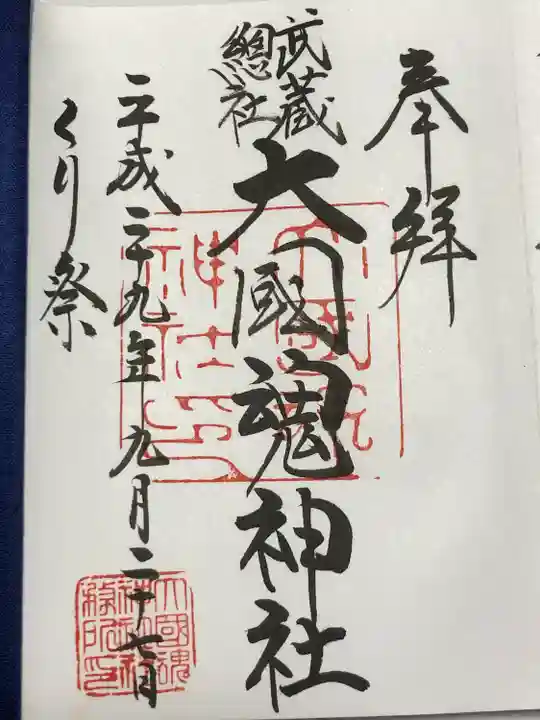 奉拝
武蔵
總社
大國魂神社
平成二十九年九月二十七日
くり祭
大國魂神社印